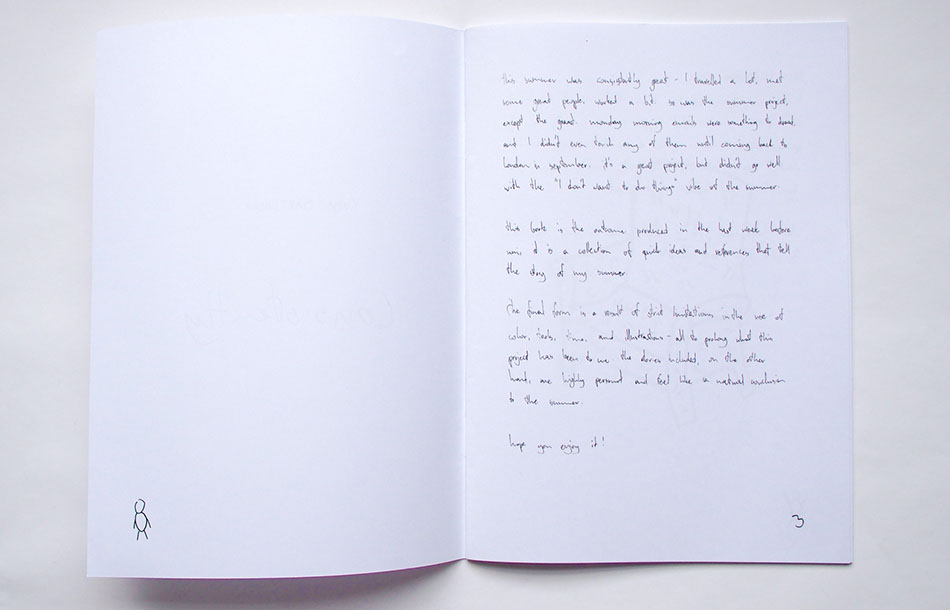 this summer was consistantly great - I travelled a lot, met
some great people, worked a bit. so was the summer project,
except the great. monday morning emails were something to dread.
and I didn't even touch any of them until coming back to
london in september. it's a great project, but didn't go well
with the "I don't want to do things" vibe of the summer.
this book is the outcome produced in the last week before
uni, it is a collection of quick ideas and references that tell
the story of my summer.
the final form is a result of strict limitations in the use of
color, tools, time, and illustrations - all to prolong what this
project has been to me. the stories included, on the other
hand, are highly personal and feel like a natural conclusion
to the summer.
hope you enjoy it!
3